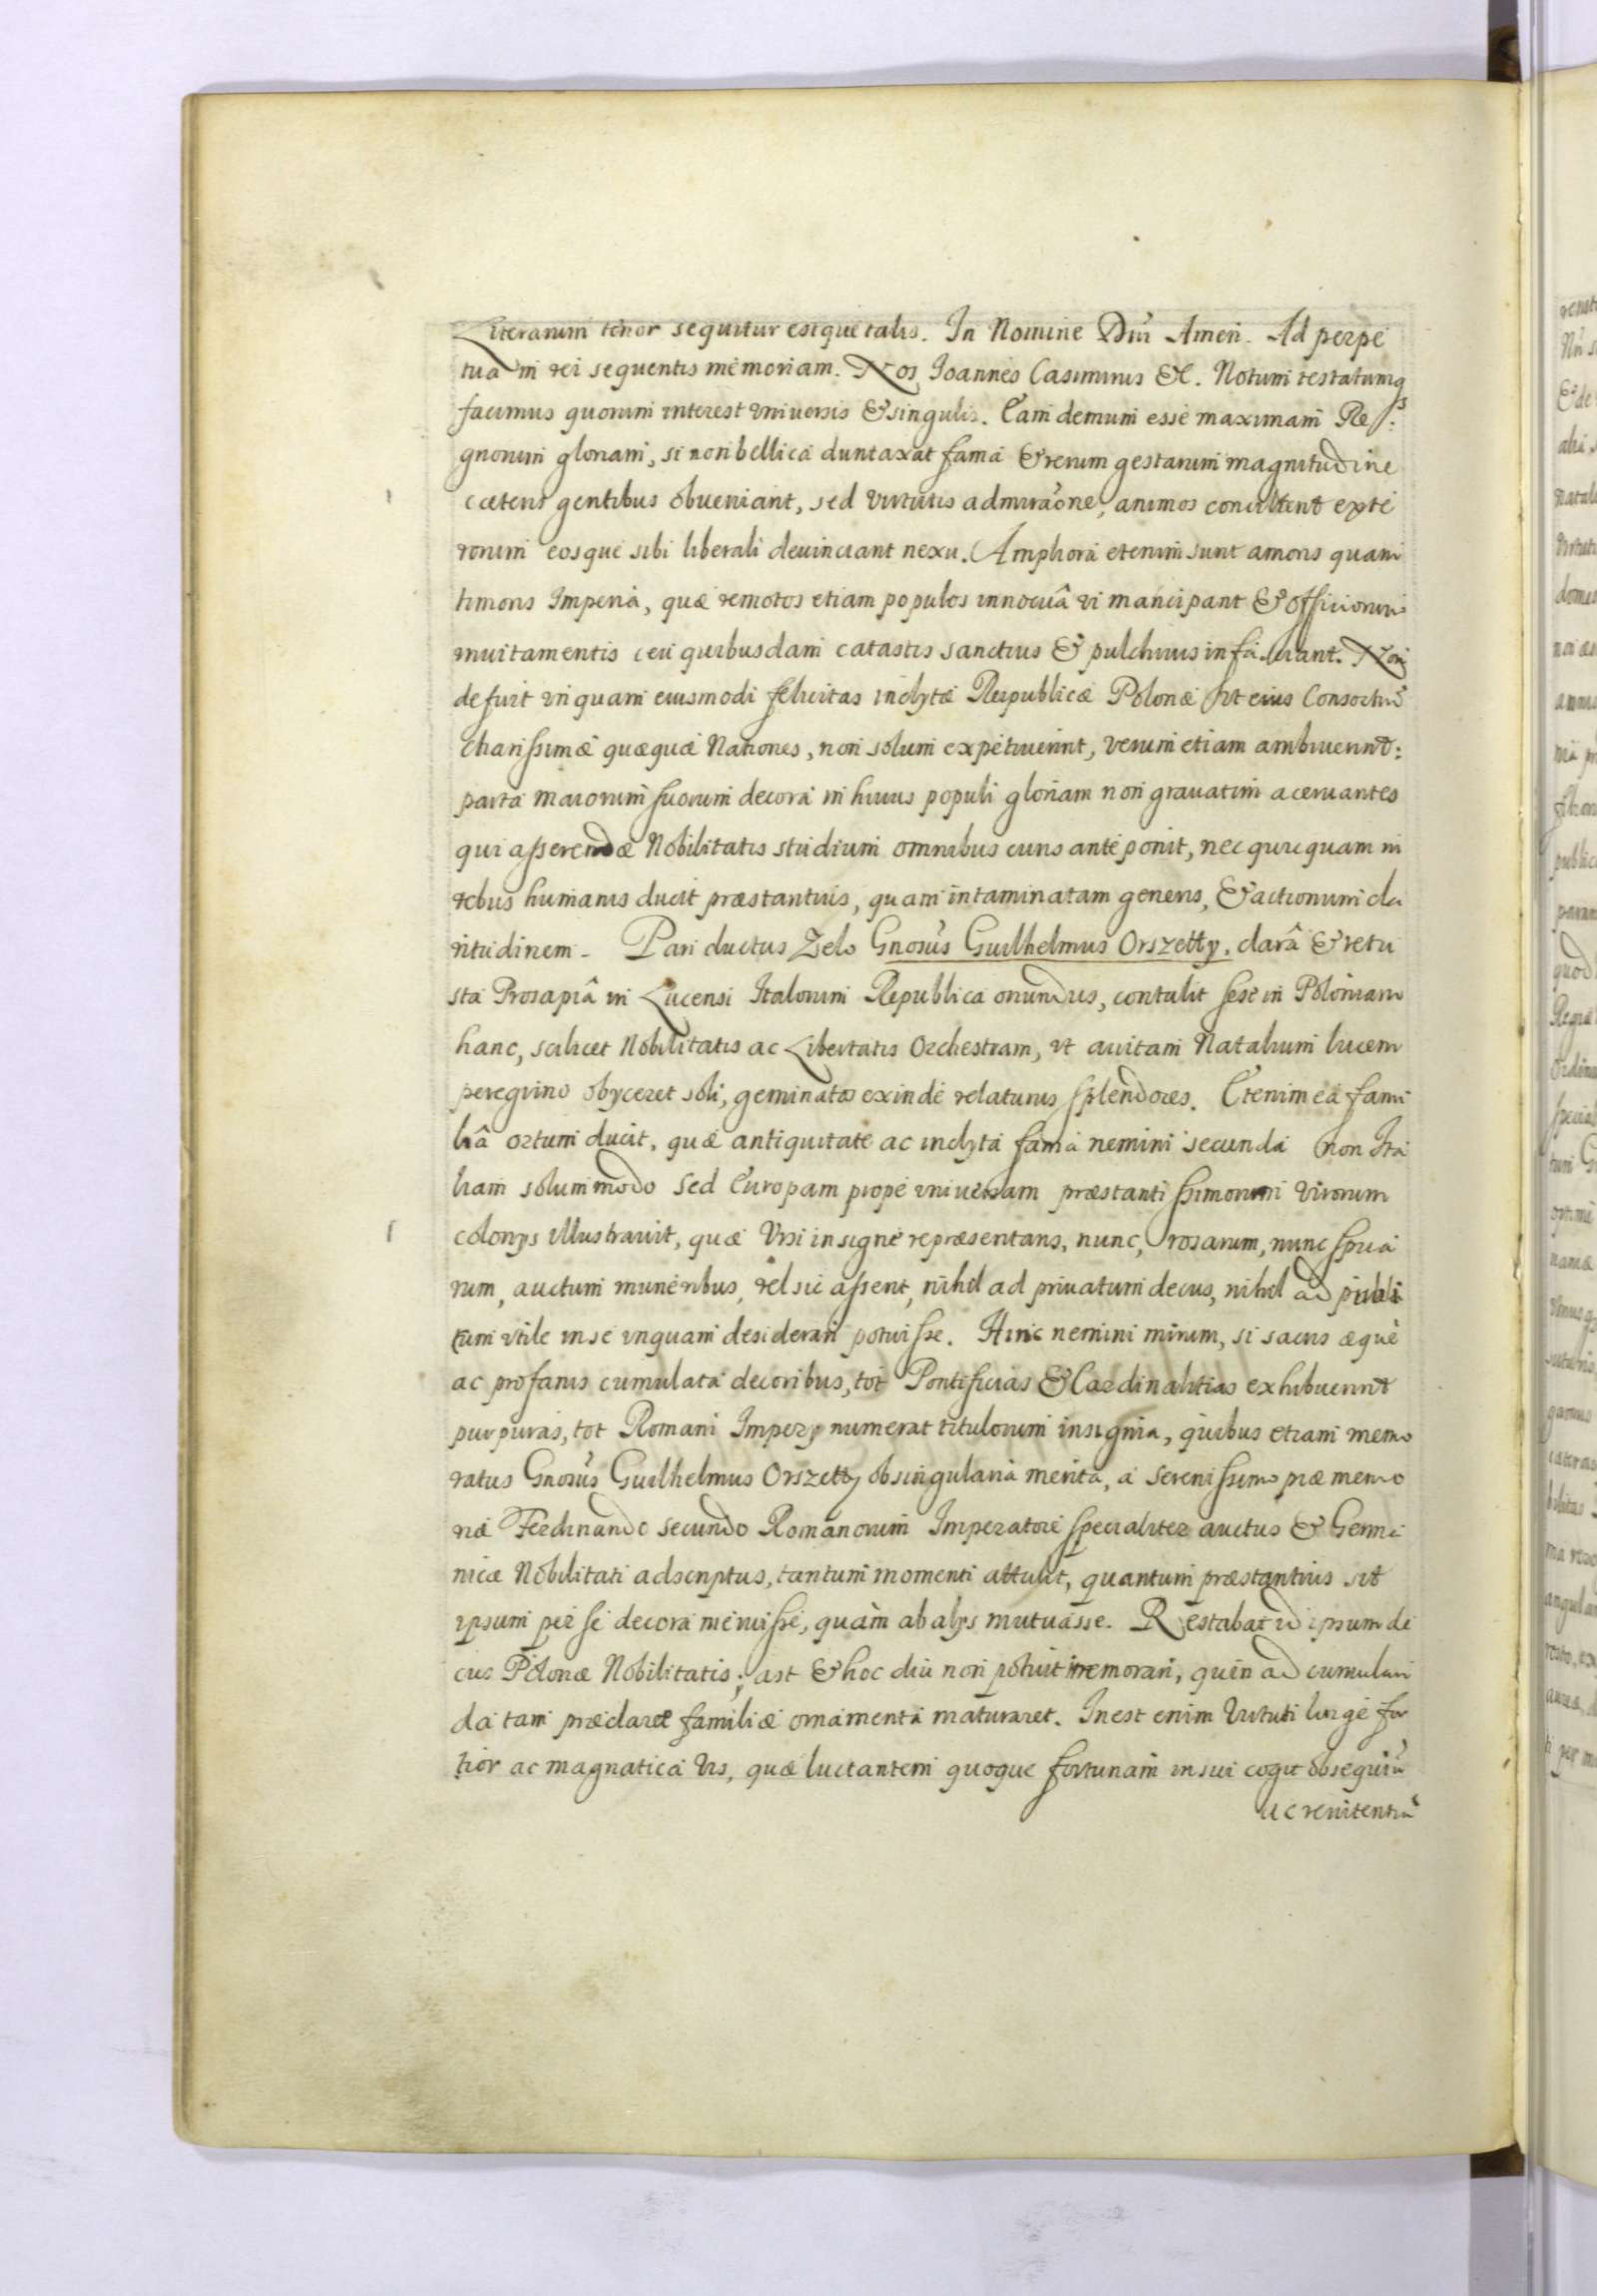 Literarum tenor sequitur estque talis. In Nomine Dni Amen. Ad perpe
tuam rei sequentis memoriam. Nos Joannes Casimirus &c. Notum testatumq3
facimus quorum interest vniuersis & singulis. Eam demum esse maximam Re:
gnorum gloriam, si non bellica duntaxat fama & rerum gestarum magnitudine
cæteris gentibus obueniant, sed virtutis admiraone, animos concilient exte
rorum eosque sibi liberali deuinciant nexu. Amphora etenim sunt amoris quam
timoris Imperia, quæ remotos etiam populos innocuâ vi mancipant & officiorum
inuitamentis ceu quibusdam catastis sanctius & pulchrius infa ciant. Non
defuit vnquam eiusmodi felicitas inclytæ Reipublicæ Polonæ vt eius Consortiũ
charissimæ quæquæ Nationes, non solum expetiuerint, verum etiam ambiuerint:
parta maiorum suorum decora in huius populi gloriam non grauatim aceruantes
qui asserendæ Nobilitatis studium omnibus curis anteponit, nec quicquam in
rebus humanis ducit præstantius, quam intaminatam generis, & actionum cla
ritudinem. Pari ductus Zelo Gnosus Guilhelmus Orszetty, clarâ & vetu
sta Prosapiâ in Lucensi Italorum Republica oriundus, contulit sese in Poloniam
hanc, scilicet Nobilitatis ac Libertatis Orchestram, vt auitam Natalium lucem
peregrino obijceret soli, geminatos exinde relaturus splendores. Etenim ea fami
liâ ortum ducit, quæ antiquitate ac inclyta fama nemini secunda non Ita
liam solummodo sed Europam prope vniuersam præstantissimorum virorum
colonijs illustrauit, quæ Vrsi insigne repræsentans, nunc, rosarum, nunc spica
rum, auctum muneribus, vel sic asserit, nihil ad priuatum decus, nihil ad publi
cum vtile in se vnquam desiderari potuisse. Hinc nemini mirum, si sacris æque
ac profanis cumulata decoribus, tot Pontificias & Cardinalitias exhibuerint
purpuras, tot Romani Imperij numerat titulorum insignia, quibus etiam memo
ratus Gnosus Guilhelmus Orszetty ob singularia merita, a Serenissimo piæ memo
riæ Ferdinando secundo Romanorum Imperatore specialiter auctus & Germa
nicæ Nobilitati adscriptus, tantum momenti attulit, quantum præstantius sit
ipsum per se decora meruisse, quàm ab alijs mutuasse. Restabat id ipsum de
cus Polonæ Nobilitatis; ast & hoc diu non potuit remorari, quin ad cumulan
da tam præclaræ familiæ ornamenta maturaret. Inest enim Virtuti longe for
tior ac magnatica vis, quæ luctantem quoque fortunam in sui cogit obsequiũ
ac renitentiã